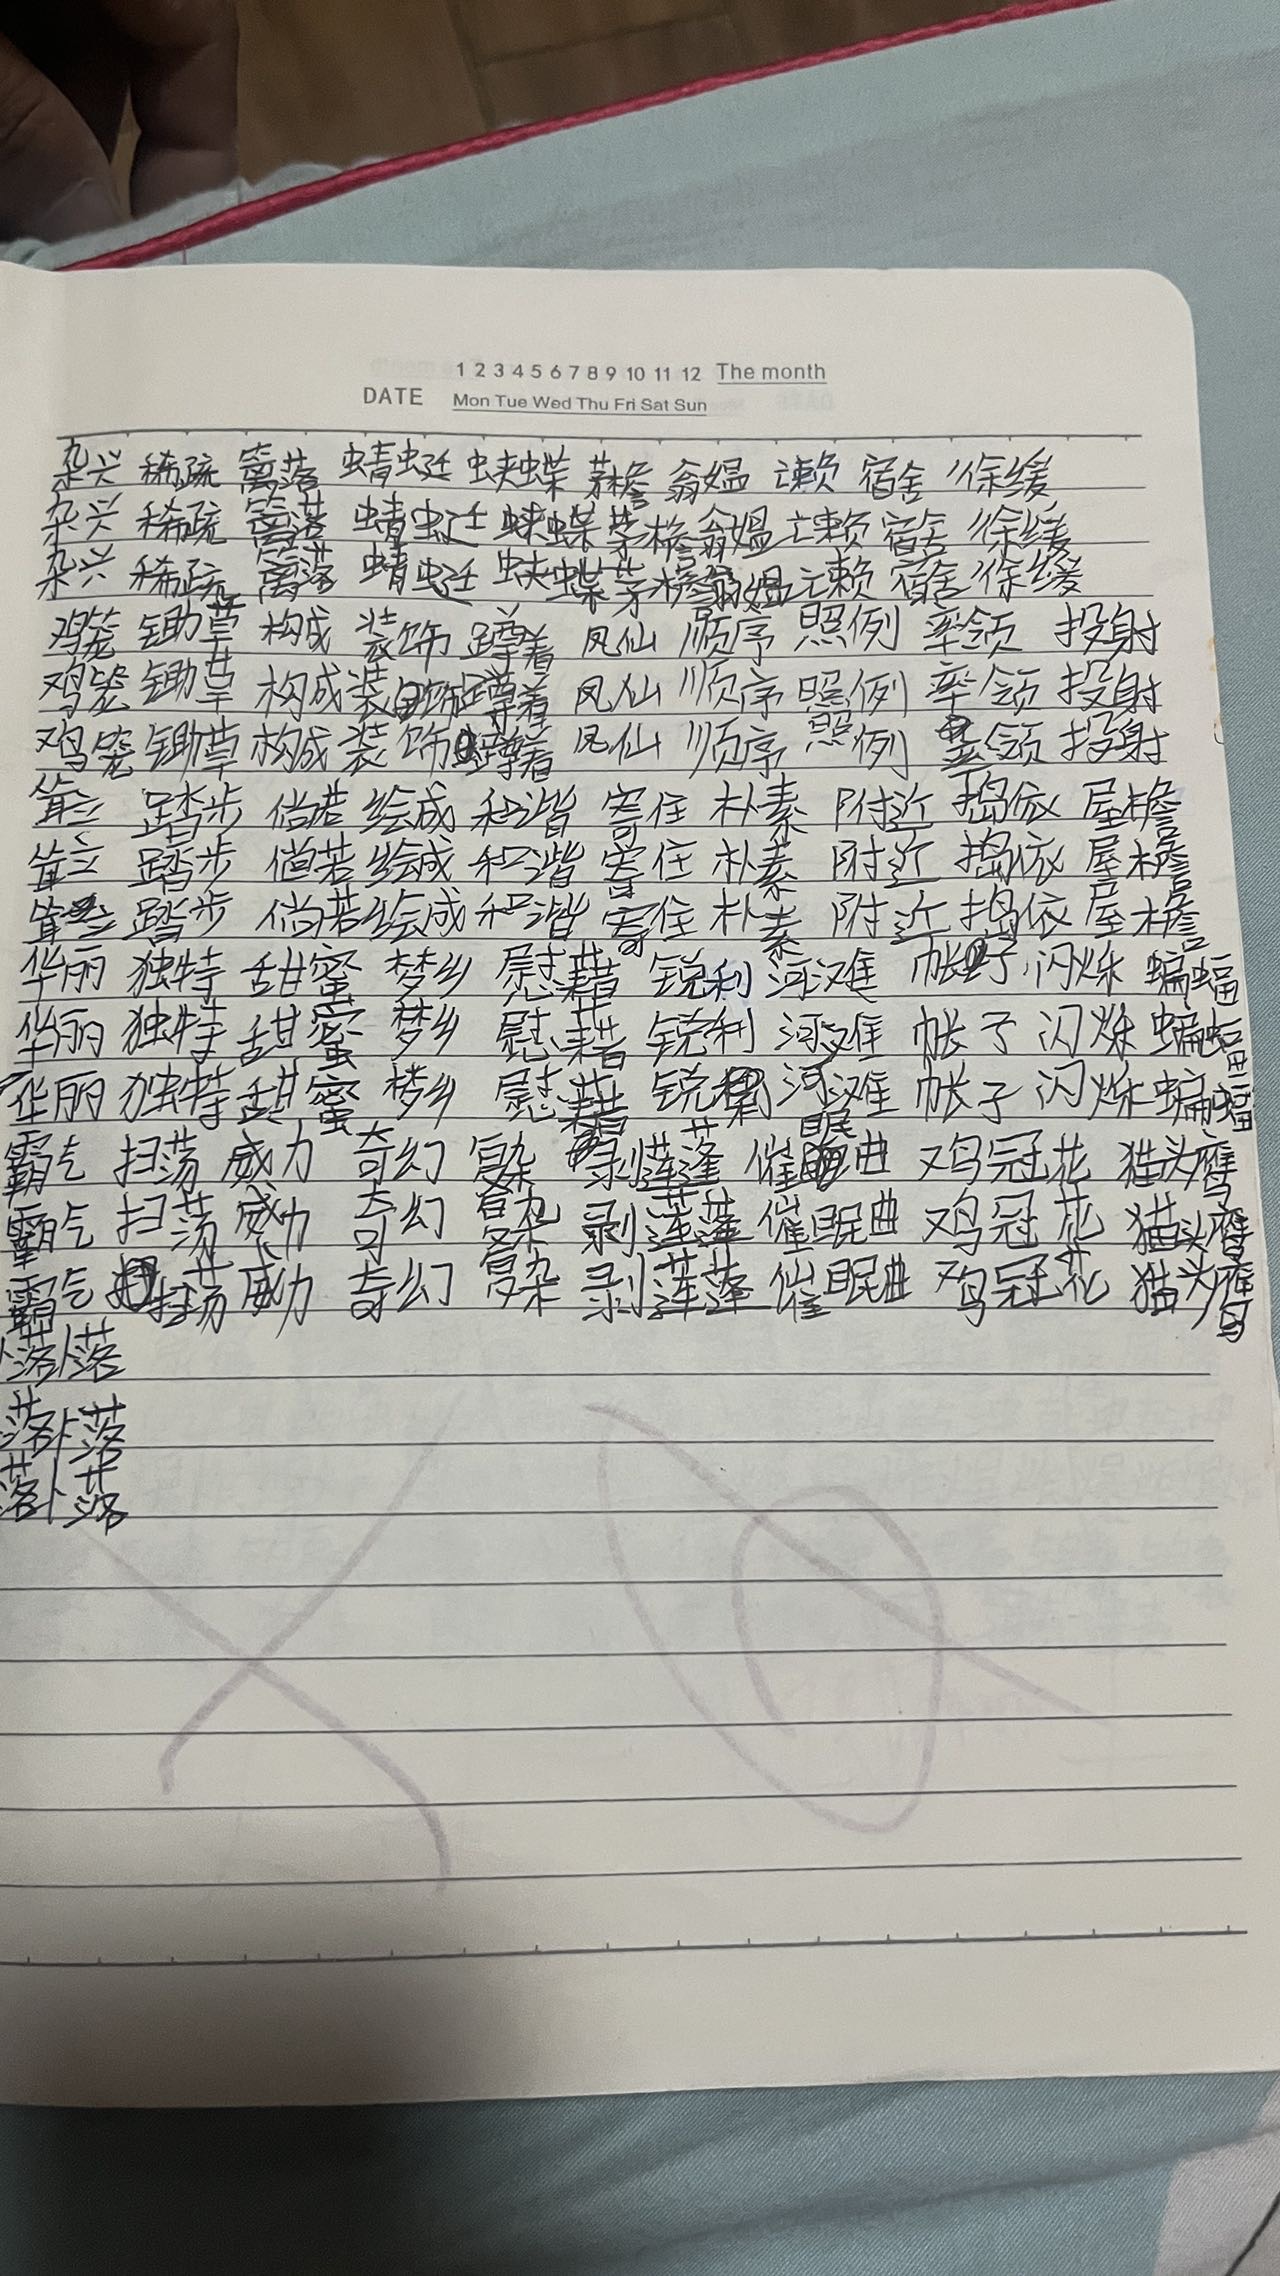 1 2 3 4 5 6 7 8 9 10 11 12 The month
DATE Mon Tue Wed Thu Fri Sat Sun
杂兴 稀疏 篱落 蜻蜓 蛱蝶 茅檐 翁媪 亡赖 宿舍 徐缓
杂兴 稀疏 篱落 蜻蜓 蛱蝶 茅檐 翁媪 亡赖 宿舍 徐缓
杂兴 稀疏 篱落 蜻蜓 蛱蝶 茅檐 翁媪 亡赖 宿舍 徐缓
鸡笼 锄草 构成 装饰 蹲着 凤仙 顺序 照例 率领 投射
鸡笼 锄草 构成 装饰 蹲着 凤仙 顺序 照例 率领 投射
鸡笼 锄草 构成 装饰 蹲着 凤仙 顺序 照例 率领 投射
耸立 踏步 倘若 绘成 和谐 寄住 朴素 附近 捣衣 屋檐
耸立 踏步 倘若 绘成 和谐 寄住 朴素 附近 捣衣 屋檐
耸立 踏步 倘若 绘成 和谐 寄住 朴素 附近 捣依 屋檐
华丽 独特 甜蜜 梦乡 慰藉 锐利 河滩 帐子 闪烁 蝙蝠
华丽 独特 甜蜜 梦乡 慰藉 锐利 河滩 帐子 闪烁 蝙蝠
华丽 独特 甜蜜 梦乡 慰藉 锐利 河滩 帐子 闪烁 蝙蝠
霸气 扫荡 威力 奇幻 复杂 剥莲蓬 催眠曲 鸡冠花 猫头鹰
霸气 扫荡 威力 奇幻 复杂 剥莲蓬 催眠曲 鸡冠花 猫头鹰
霸气 扫荡 威力 奇幻 复杂 剥莲蓬 催眠曲 鸡冠花 猫头鹰
卜落卜落
落卜落
落卜落